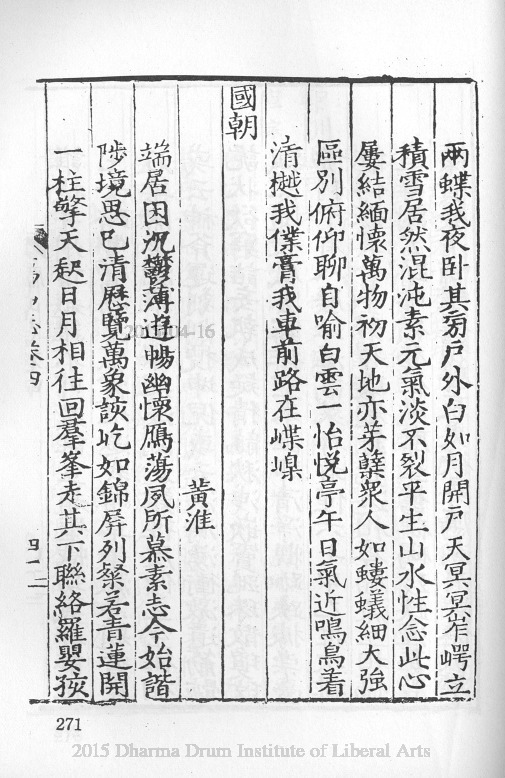 兩蝶我夜卧其旁戶外白如月開戶天冥冥岞崿立
積雪居然混沌素元氣淡不裂平生山水性念此心
屢結緬懷萬物初天地亦芽蘖衆人如螻蟻細大強
區別俯仰聊自喻白雲一怡悅亭午日氣近鳴鳥着
清樾我僕膏我車前路在嵽嵲
國朝
黃淮
端居困沉鬱薄遊暢幽懷鴈蕩夙所慕素志今始諧
陟境思巳清歷覽萬象該屹如錦屏列粲若青蓮開
一柱擎天起日月相往回羣峯走其下聯絡羅嬰孩
志卷四
四十二
271
2015-04-16
2015 Dharma Drum Institute of Liberal Arts